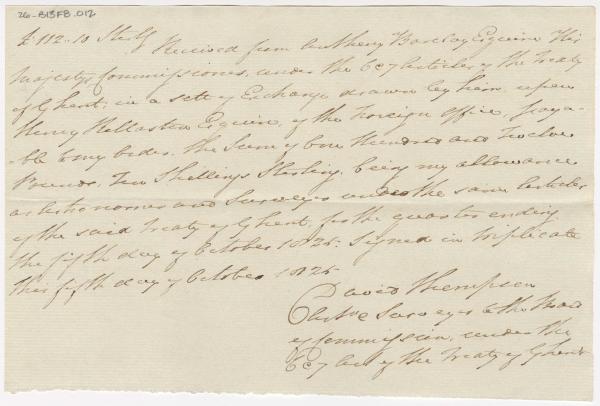 26-B13F8.012
£112-10 Sterlg Received from Anthony Barclay Esquire His
Majestys Commissioner, under the 6 & 7 Articles of the Treaty
of Ghent, in a sett of Exchange drawn by him upon
Henry Esquire, of the Foreign Office, paya-
-ble to my order, the Sum of One Hundred and Twelve
Pounds, Ten Shillings Sterling, being my allowance
as Astronomer and Surveyor under the same Articles
of the said Treaty of Ghent, for the quarter ending
the fifth day of October 1825. Signed in triplicate
this fifth day of October 1825
David Thompson
Surveyor to the Board
of Commission, under the
6 & 7 Art of the Treaty of Ghent